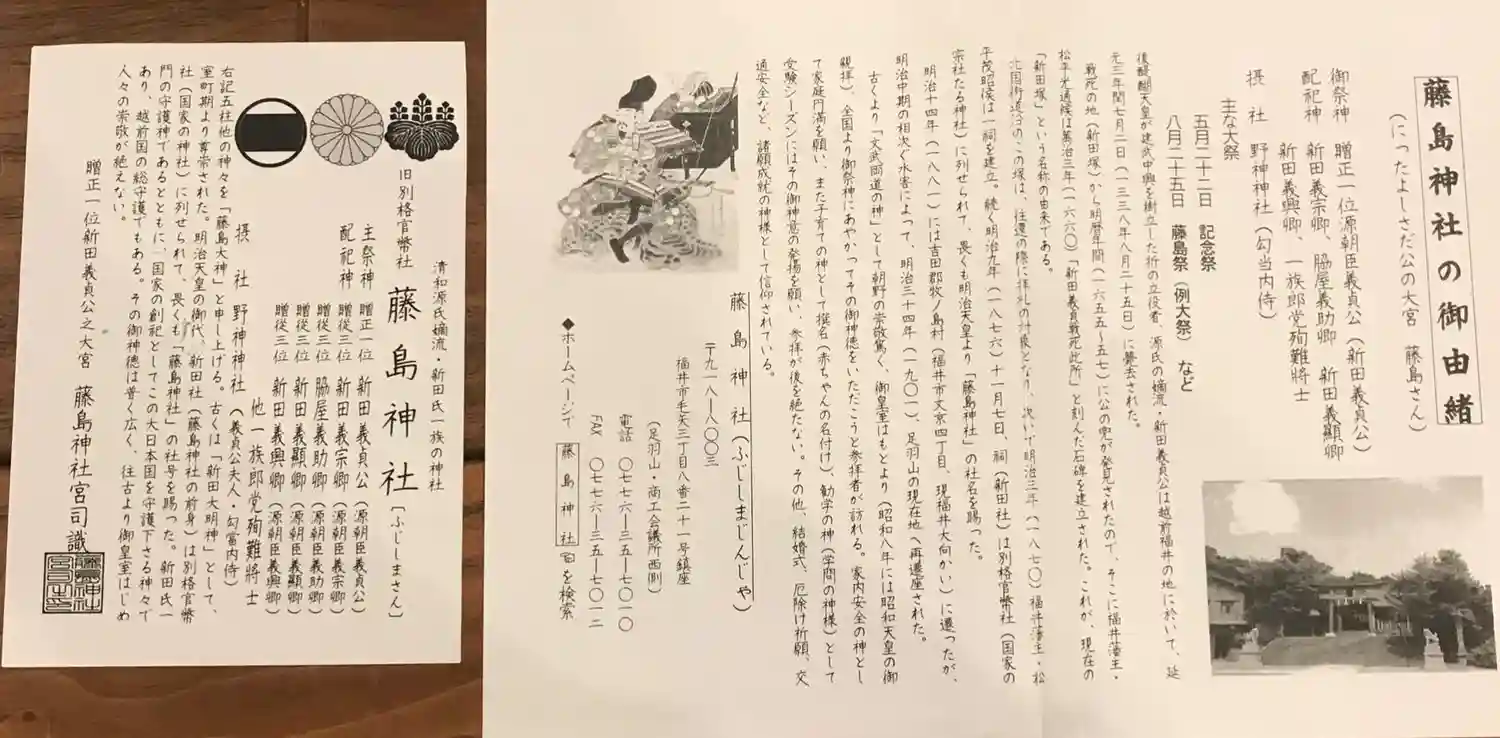 藤島神社の御由緒
（にったよしさだ公の大宮　藤島さん）
御祭神　贈正一位源朝臣義貞公（新田義貞公）
配祀神　新田義宗卿、脇屋義助卿　新田義顯卿
新田義興卿、一族郎党殉難將士
摂　社　野神神社（勾当内侍）
主な大祭
五月二十二日　記念祭
八月二十五日　藤島祭（例大祭）など
後醍醐天皇が建武中興を樹立した折の立役者、源氏の嫡流・新田義貞公は越前福井の地に於いて、延
元三年閏七月二日（一三三八年八月二十五日）に薨去された。
戦死の地（新田塚）から明暦年間（一六五五～五七）に公の兜が発見されたので、そこに福井藩主・
松平光通候は萬治三年（一六六〇）「新田義貞戦死此所」と刻んだ石碑を建立された。これが、現在の
「新田塚」という名称の由来である。
北国街道沿のこの塚は、往還の際に拝礼の対象となり、次いで明治三年（一八七〇）福井藩主・松
平茂昭候は一祠を建立。続く明治九年（一八七六）十一月七日、祠（新田社）は別格官幣社（国家の
宗社たる神社）に列せられて、畏くも明治天皇より「藤島神社」の社名を賜った。
明治十四年（一八八一）には吉田郡牧ノ島村（福井市文京四丁目、現福井大向かい）に遷ったが、
明治中期の相次ぐ水害によって、明治三十四年（一九〇一）、足羽山の現在地へ再遷座された。
古くより「文武両道の神」として朝野の崇敬篤く、御皇室はもとより（昭和八年には昭和天皇の御
親拝）、全国より御祭神にあやかってその御神徳をいただこうと参拝者が訪れる。家内安全の神とし
て家庭円満を願い、また子育ての神として撰名（赤ちゃんの名付け）、勧学の神（学問の神様）として
受験シーズンにはその御神意の発揚を願い、参拝が後を絶たない。その他、結婚式、厄除け祈願、交
通安全など、諸願成就の神様として信仰されている。
藤島神社（ふじしまじんじゃ）
〒九一八ー八〇〇三
福井市毛矢三丁目八番二十一号鎮座
（足羽山・商工会議所西側）
電話　〇七七六ー三五ー七〇一〇
FAX　〇七七六ー三五ー七〇一二
◆ホームページで　藤島神社　を検索
清和源氏嫡流・新田氏一族の神社
旧別格官幣社　藤島神社〔ふじしまさん〕
主祭神　贈正一位　新田義貞公（源朝臣義貞公）
配祀神　贈從三位　新田義宗卿（源朝臣義宗卿）
贈從三位　脇屋義助卿（源朝臣義助卿）
贈從三位　新田義顯卿（源朝臣義顯卿）
贈從三位　新田義興卿（源朝臣義興卿）
他一族郎党殉難將士
摂　社　野神神社（義貞公夫人・勾當内侍）
右記五柱他の神々を「藤島大神」と申し上げる。古くは「新田大明神」として、
室町期より尊崇された。明治天皇の御代、新田社（藤島神社の前身）は別格官幣
社（国家の神社）に列せられて、畏くも「藤島神社」の社号を賜った。新田氏一
門の守護神であるとともに、国家の創祀としてこの大日本国を守護下さる神々で
あり、越前国の総守護でもある。その御神徳は普く広く、往古より御皇室はじめ
人々の崇敬が絶えない。
贈正一位新田義貞公之大宮　藤島神社宮司識